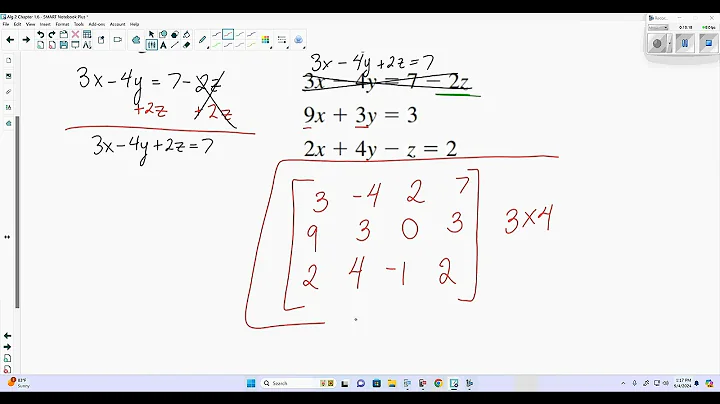 Alg 2 Chapter 1.6 - SMART Notebook Plus *
File Edit View Insert Format Tools Add-ons Help
3x - 4y = 7 - 2z
+2z +2z
3x - 4y + 2z = 7
3x - 4y + 2z = 7
3x - 4y = 7 - 2z
9x + 3y = 3
2x + 4y - z = 2
3 -4 2 7
9 3 0 3
2 4 -1 2
3 x 4
83°F
Sunny
Search
1:17 PM
9/4/2024